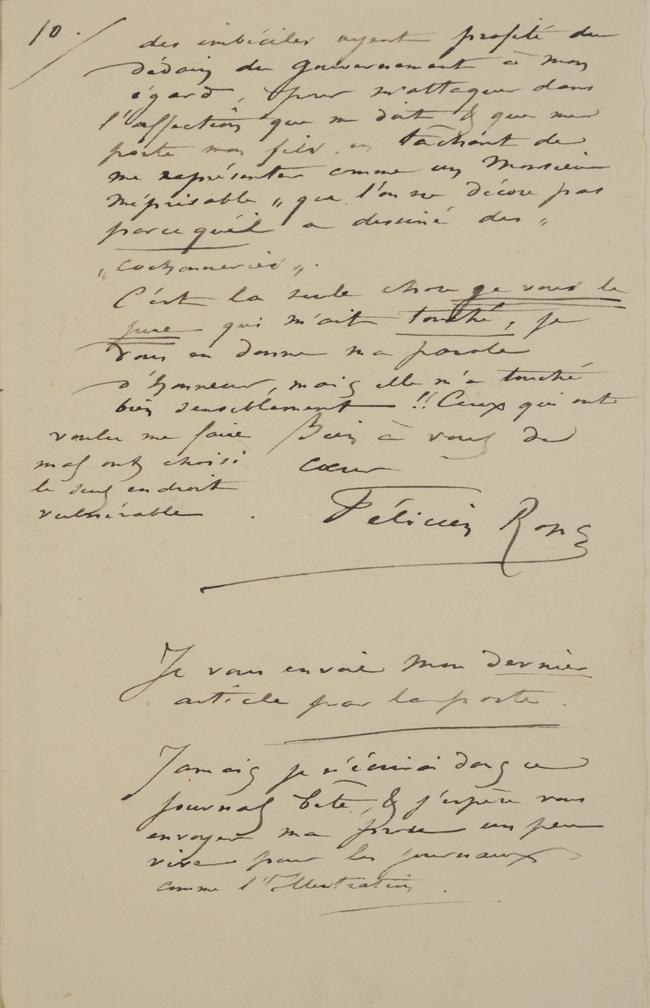 10.
des imbéciles ayant profité du
dédain du gouvernement à mon
égard, pour m'attaquer dans
l'affection que me doit & que me
porte mon fils. en tâchant de
me représenter comme un Monsieur
méprisable „ que l'on ne décore pas
parcequ'il a dessiné des „
„ cochonneries „.
C'est la seule chose je vous le
jure qui m'ait touché, je
vous en donne ma parole
d'honneur, mais elle m'a touché
bien sensiblement !! Ceux qui ont
voulu me faire
mal ont choisi
le seul endroit
vulnérable.
Bien à vous de
cœur
Félicien Rops
Je vous envoie mon dernier
article par la poste.
Jamais je n'écrirai dans ce
journal bête, & j'espère vous
envoyer ma prose un peu
vive pour les journaux
comme l'Illustration.